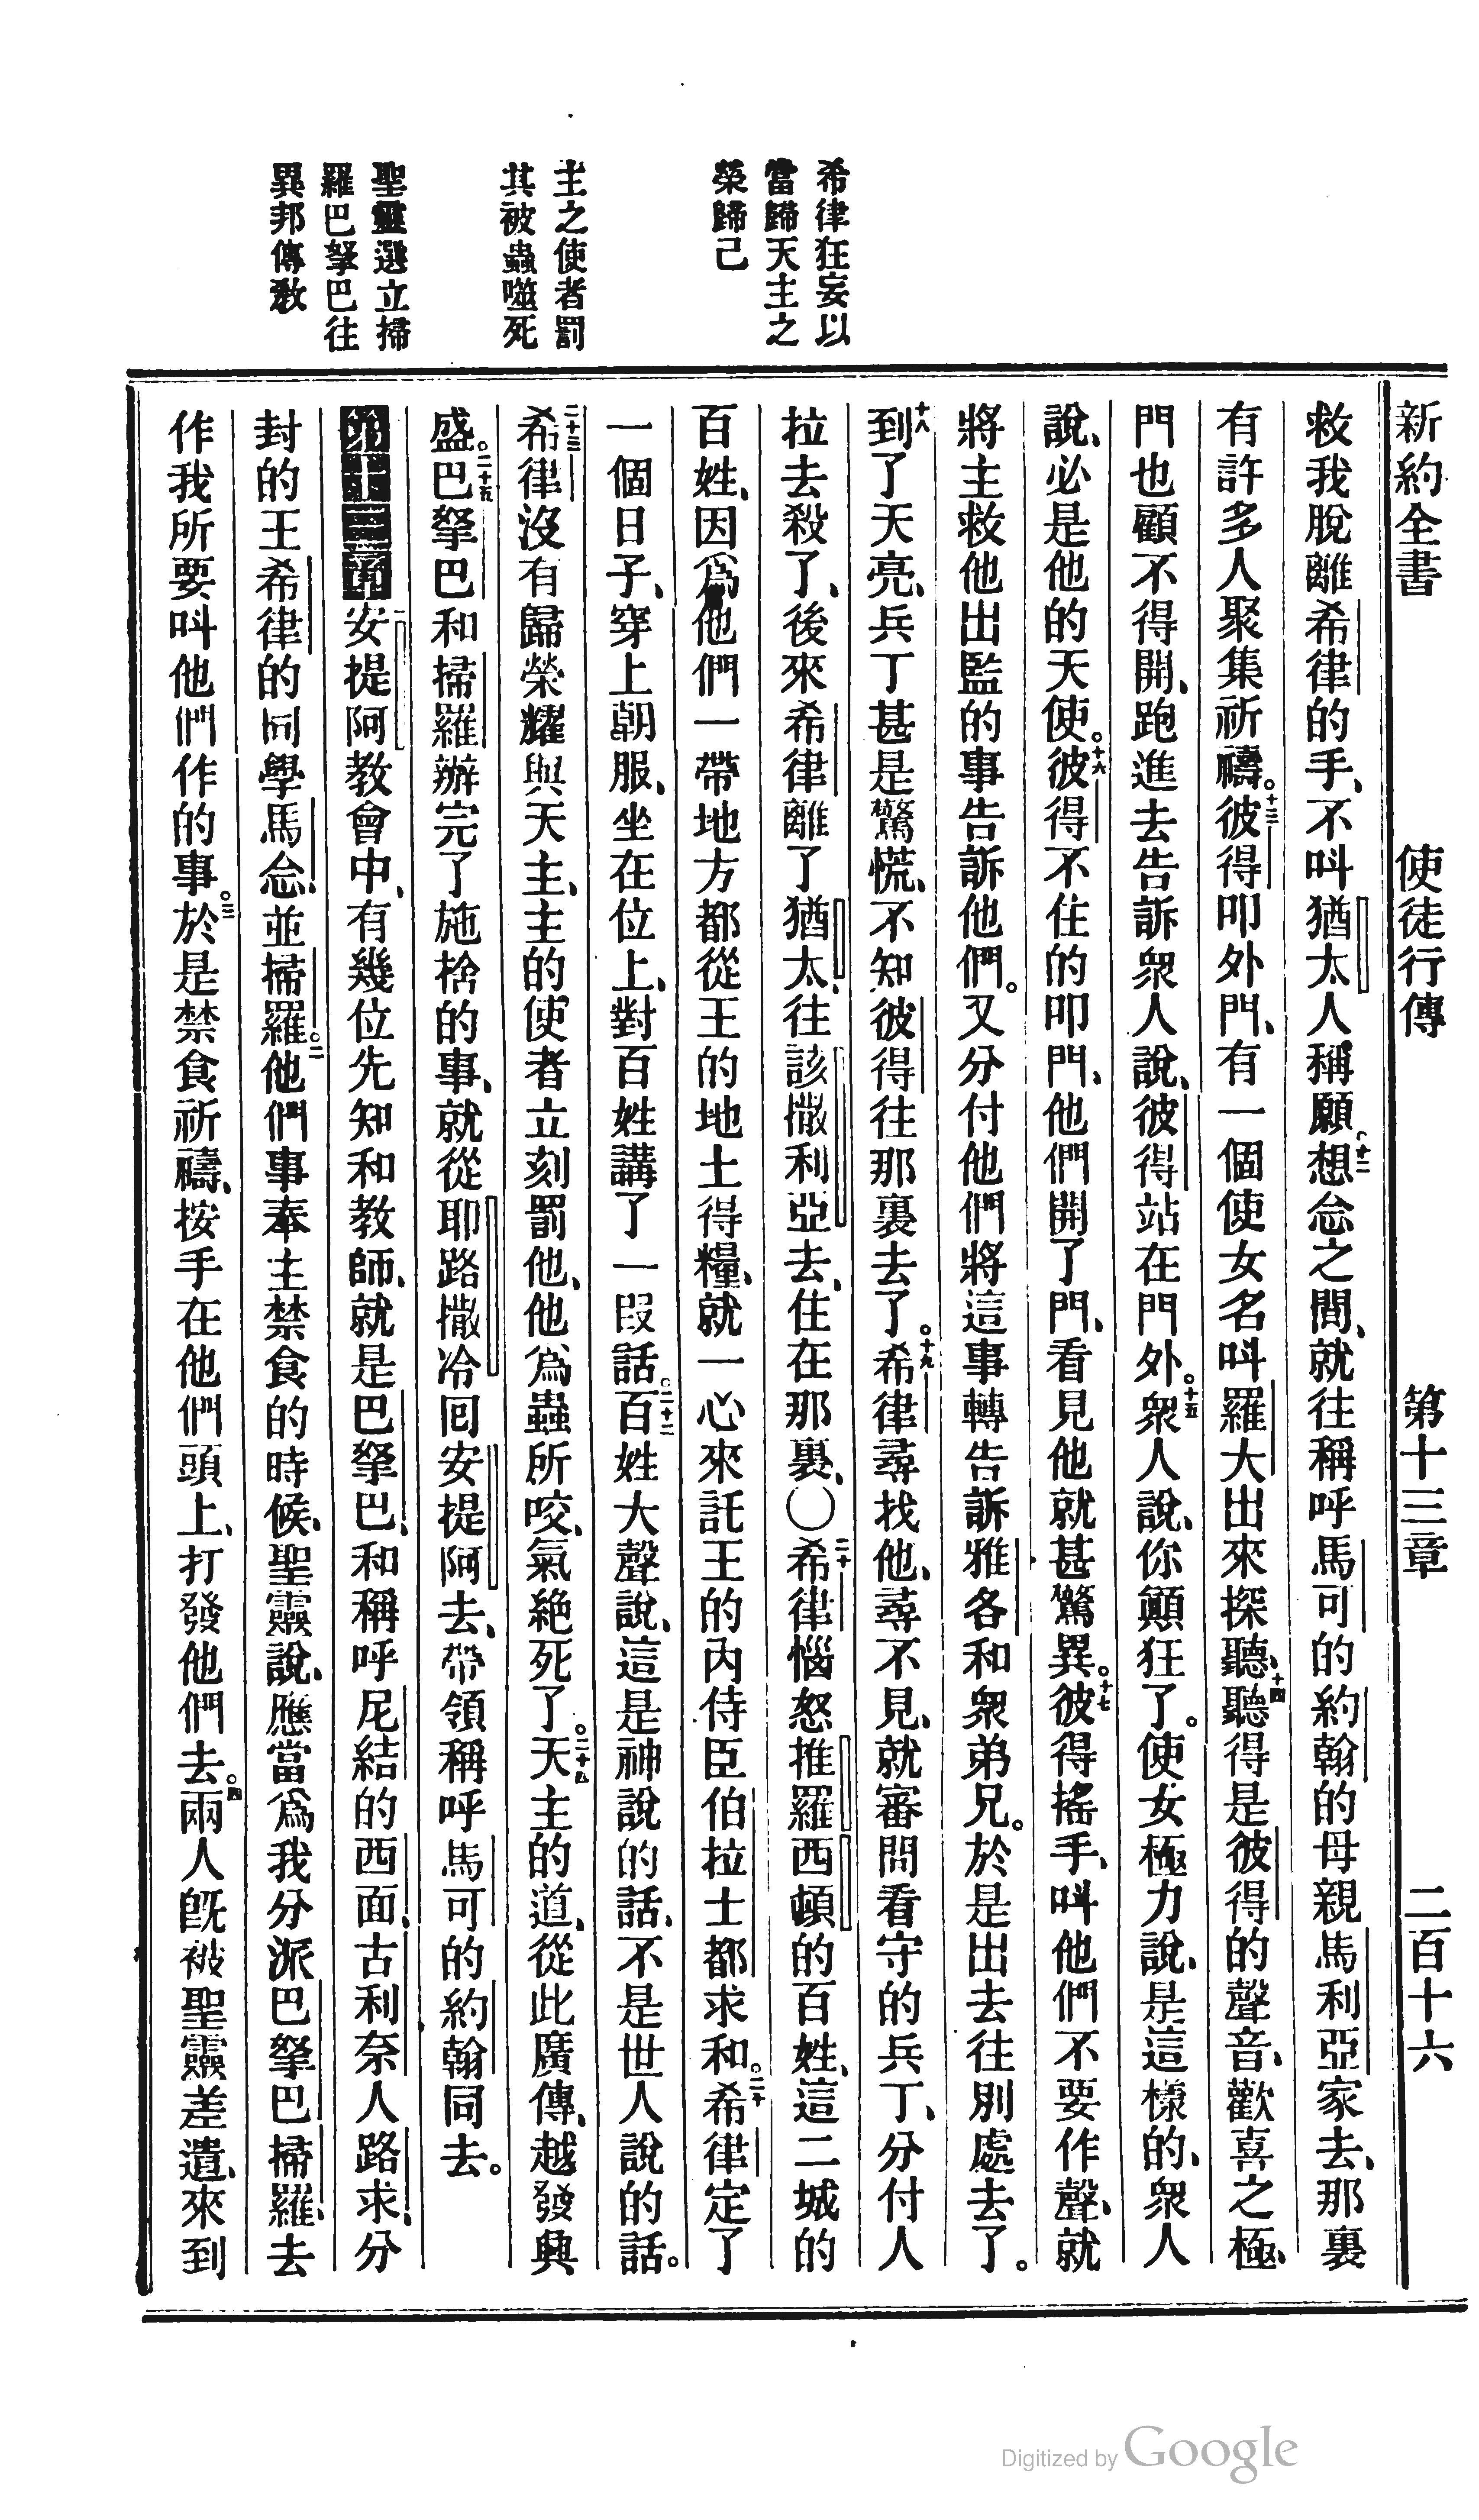 新約全書 使徒行傳 第十三章 二百十六
希律狂妄以
當歸天主之
榮歸己
主之使者罰
其被蟲噬死
聖靈選立掃
羅巴拏巴往
異邦傳教
救我脫離希律的手、不呌猶太人稱願。十二想念之間、就往稱呼馬可的約翰的母親馬利亞家去、那裏
有許多人聚集祈禱。十三彼得叩外門、有一個使女名呌羅大出來探聽、十四聽得是彼得的聲音、歡喜之極、
門也顧不得開、跑進去告訴衆人說、彼得站在門外。十五衆人說、你顚狂了。使女極力說、是這樣的、衆人
說、必是他的天使。十六彼得不住的叩門、他們開了門、看見他就甚驚異。十七彼得搖手、呌他們不要作聲、就
將主救他出監的事告訴他們。又分付他們將這事轉告訴雅各和衆弟兄。於是出去往別處去了。
十八到了天亮、兵丁甚是驚慌、不知彼得往那裏去了。十九希律尋找他、尋不見、就審問看守的兵丁、分付人
拉去殺了、後來希律離了猶太、往該撒利亞去、住在那裏、〇二十希律惱怒推羅西頓的百姓、這二城的
百姓、因爲他們一帶地方都從王的地土得糧、就一心來託王的內侍臣伯拉士都求和。二十一希律定了
一個日子、穿上朝服、坐在位上、對百姓講了一段話。二十二百姓大聲說、這是神說的話、不是世人說的話。
二十三希律沒有歸榮耀與天主、主的使者立刻罰他、他爲蟲所咬、氣絕死了。二十四天主的道、從此廣傳、越發興
盛。二十五巴拏巴和掃羅辦完了施捨的事、就從耶路撒冷回安提阿去、帶領稱呼馬可的約翰同去。
一安提阿教會中、有幾位先知和教師、就是巴拏巴、和稱呼尼結的西面、古利奈人路求、分
封的王希律的同學馬念、並掃羅。二他們事奉主禁食的時候、聖靈說、應當爲我分派巴拏巴掃羅、去
作我所要呌他們作的事。三於是禁食祈禱、按手在他們頭上、打發他們去。四兩人旣被聖靈差遣、來到
Digitized by Google